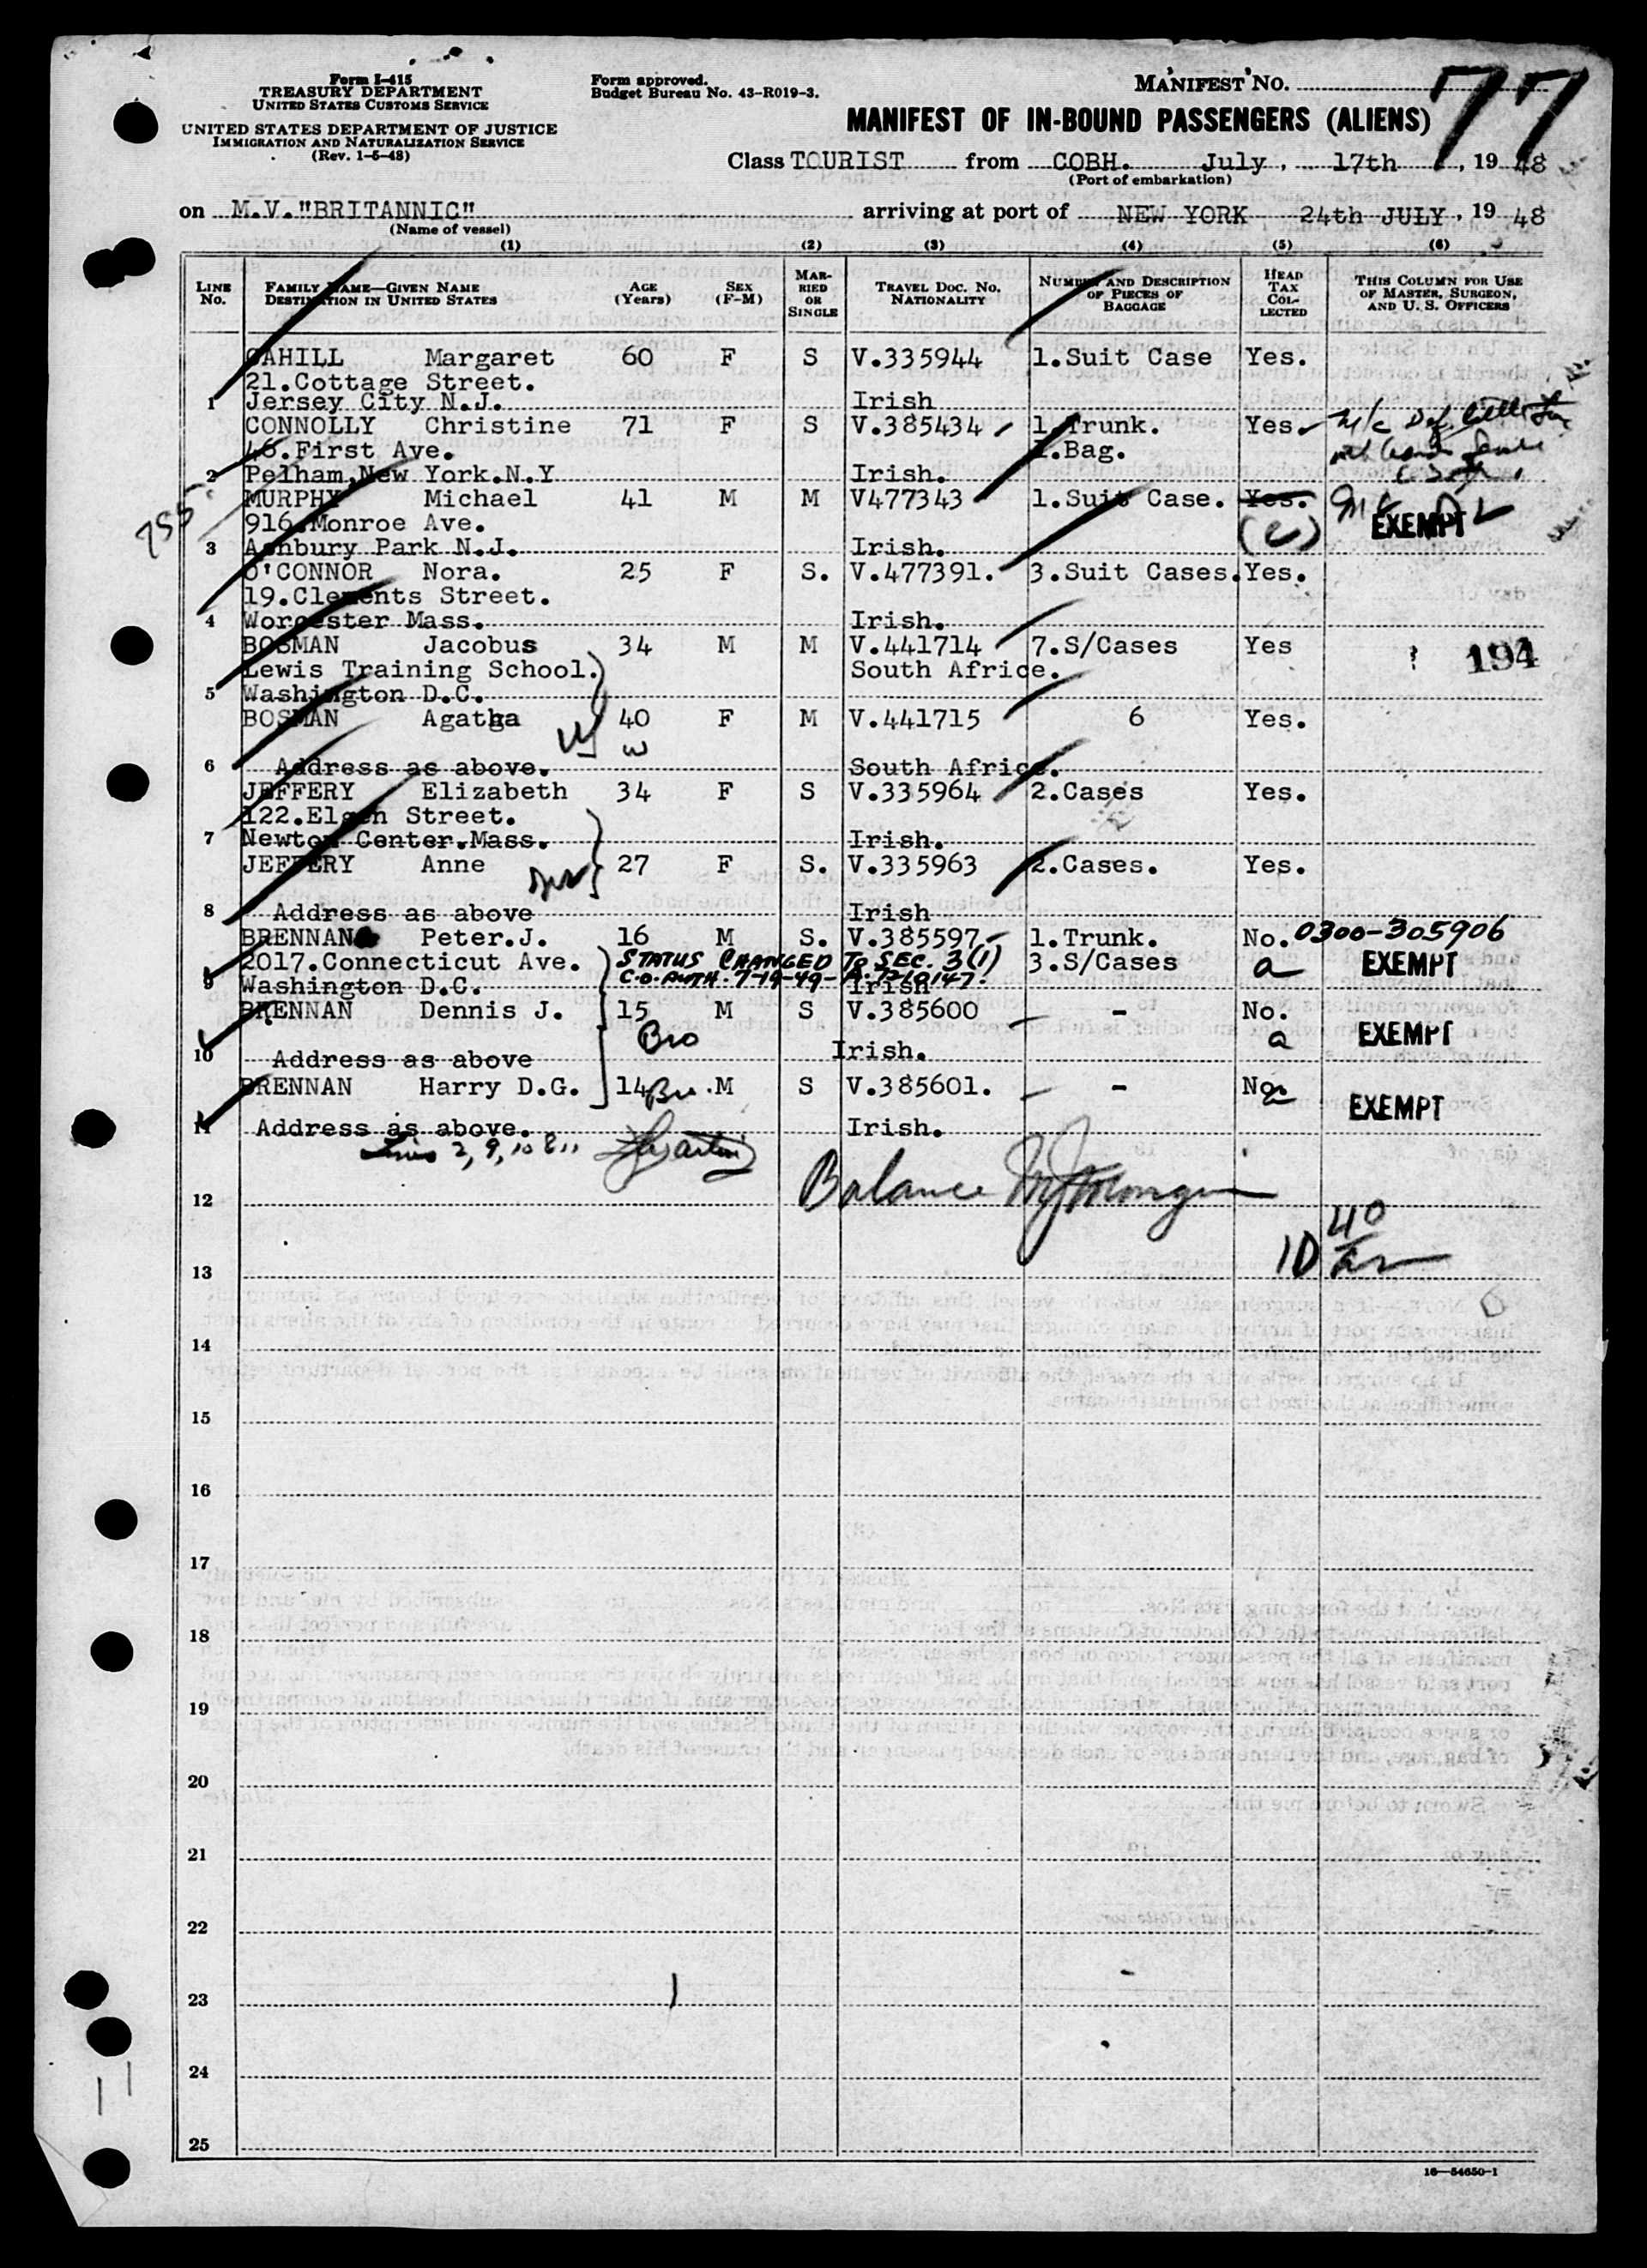 Form I-415
TREASURY DEPARTMENT
UNITED STATES CUSTOMS SERVICE
UNITED STATES DEPARTMENT OF JUSTICE
IMMIGRATION AND NATURALIZATION SERVICE
(Rev. 1-6-48)
Form approved.
Budget Bureau No. 43-R019-3.
MANIFEST NO. 77
MANIFEST OF IN-BOUND PASSENGERS (ALIENS)
Class TOURIST from COBH. July, 17th, 19 48
(Port of embarkation)
on M.V."BRITANNIC" arriving at port of NEW YORK 24th JULY, 19 48
(Name of vessel)
(1) (2) (3) (4) (5) (6)
LINE No. FAMILY NAME—GIVEN NAME DESTINATION IN UNITED STATES AGE (Years) SEX (F-M) MARRIED OR SINGLE TRAVEL DOC. NO. NATIONALITY NUMBER AND DESCRIPTION OF PIECES OF BAGGAGE HEAD TAX COLLECTED THIS COLUMN FOR USE OF MASTER, SURGEON, AND U. S. OFFICERS
CAHILL Margaret 60 F S V.335944 1.Suit Case Yes.
21.Cottage Street.
1 Jersey City N.J. Irish
CONNOLLY Christine 71 F S V.385434 1.Trunk. Yes.
46.First Ave. 1.Bag.
2 Pelham.New York.N.Y Irish.
755
MURPHY Michael 41 M M V477343 1.Suit Case. Yes.
916.Monroe Ave. (c) EXEMPT
3 Ashbury Park N.J. Irish.
O'CONNOR Nora. 25 F S. V.477391. 3.Suit Cases. Yes.
19.Clements Street.
4 Worcester Mass. Irish.
BOSMAN Jacobus 34 M M V.441714 7.S/Cases Yes 194
Lewis Training School. South Africe.
5 Washington D.C.
BOSMAN Agatha 40 F M V.441715 6 Yes.
W
6 Address as above. South Africe.
JEFFERY Elizabeth 34 F S V.335964 2.Cases Yes.
122.Elgin Street.
7 Newton Center.Mass. Irish.
JEFFERY Anne 27 F S. V.335963 2.Cases. Yes.
8 Address as above Irish
BRENNAN Peter.J. 16 M S. V.385597 1.Trunk. No. 0300-305906
2017.Connecticut Ave. STATUS CHANGED TO SEC. 3(1) 3.S/Cases a EXEMPT
C.O. AUTH. 7-19-49- A-7210147.
9 Washington D.C. Irish
BRENNAN Dennis J. 15 M S V.385600 - No.
Bro a EXEMPT
10 Address as above Irish.
BRENNAN Harry D.G. 14 Bro. M S V.385601. - No. EXEMPT
11 Address as above. Irish.
Lines 2, 9, 10 & 11
12 Balance
10 40
13
14
15
16
17
18
19
20
21
22
23
24
25
16—54650-1